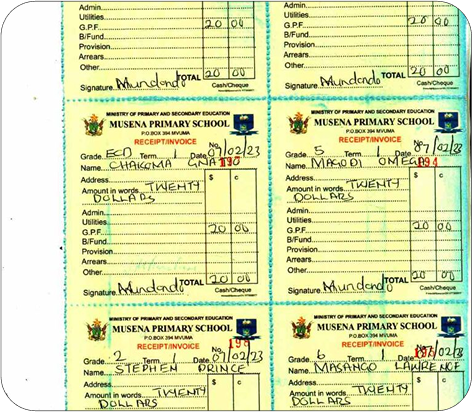 Admin
Utilities
G.P.F 20 00
B/Fund
Provision
Arrears
Other
TOTAL 20 00
Signature Mundondo Cash/Cheque
Admin
Utilities
G.P.F 20 00
B/Fund
Provision
Arrears
Other
TOTAL 20 00
Signature Mundondo Cash/Cheque
MINISTRY OF PRIMARY AND SECONDARY EDUCATION
MUSENA PRIMARY SCHOOL
P.O.BOX 394 MVUMA
RECEIPT/INVOICE No.
Grade ECD Term 1 Date 07/02/23
Name CHAKOMA
Address $ c
Amount in words TWENTY
DOLLARS
Admin
Utilities
G.P.F 20 00
B/Fund
Provision
Arrears
Other
TOTAL 20 00
Signature Mundondo Cash/Cheque
MINISTRY OF PRIMARY AND SECONDARY EDUCATION
MUSENA PRIMARY SCHOOL
P.O.BOX 394 MVUMA
RECEIPT/INVOICE No.
Grade 5 Term 1 Date 07/02/23
Name MAGODI OMEGA 194
Address $ c
Amount in words TWENTY
DOLLARS
Admin
Utilities
G.P.F 20 00
B/Fund
Provision
Arrears
Other
TOTAL 20 00
Signature Mundondo Cash/Cheque
MINISTRY OF PRIMARY AND SECONDARY EDUCATION
MUSENA PRIMARY SCHOOL
P.O.BOX 394 MVUMA
RECEIPT/INVOICE No.
Grade 2 Term 1 Date 07/02/23
Name STEPHEN PRINCE
Address $ c
Amount in words TWENTY
DOLLARS
MINISTRY OF PRIMARY AND SECONDARY EDUCATION
MUSENA PRIMARY SCHOOL
P.O.BOX 394 MVUMA
RECEIPT/INVOICE No.
Grade 6 Term 1 Date /02/23
Name MASANGO LAWRENCE
Address $ c
Amount in words TWENTY
DOLLARS